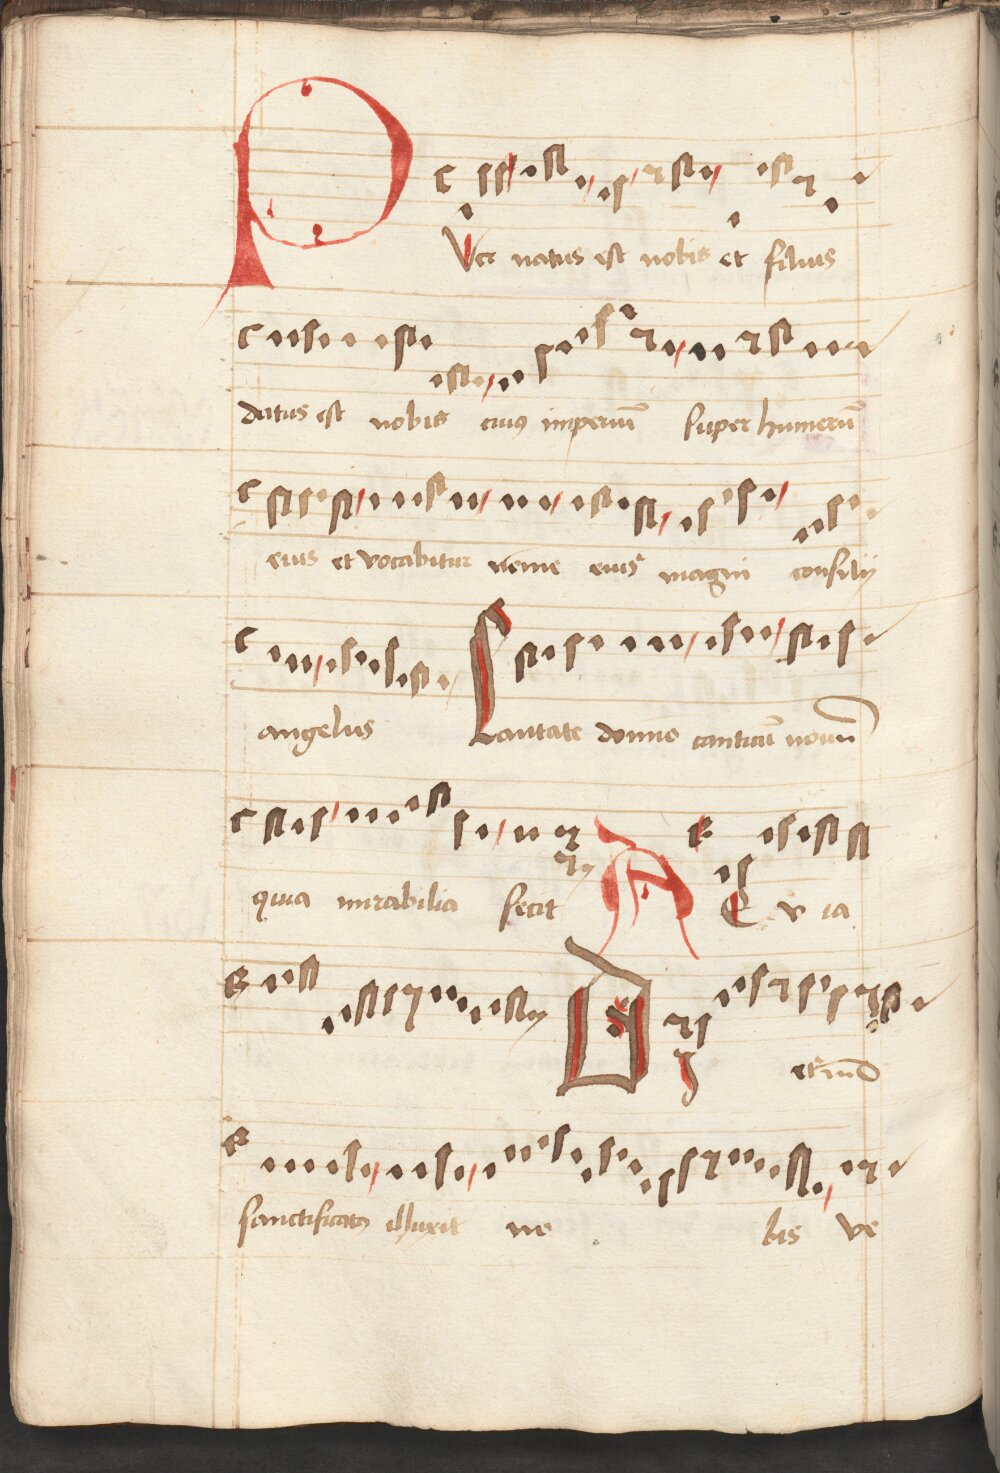 PVer natus est nobis et filius
datus est nobis cuiꝰ imperiū super humerū
eius et vocabitur nome eius magni consilij
angelus Cantate domino canticū nouū
quia mirabilia fecit A E v ia
DI es
sanctificatꝰ illuxit no bis ve